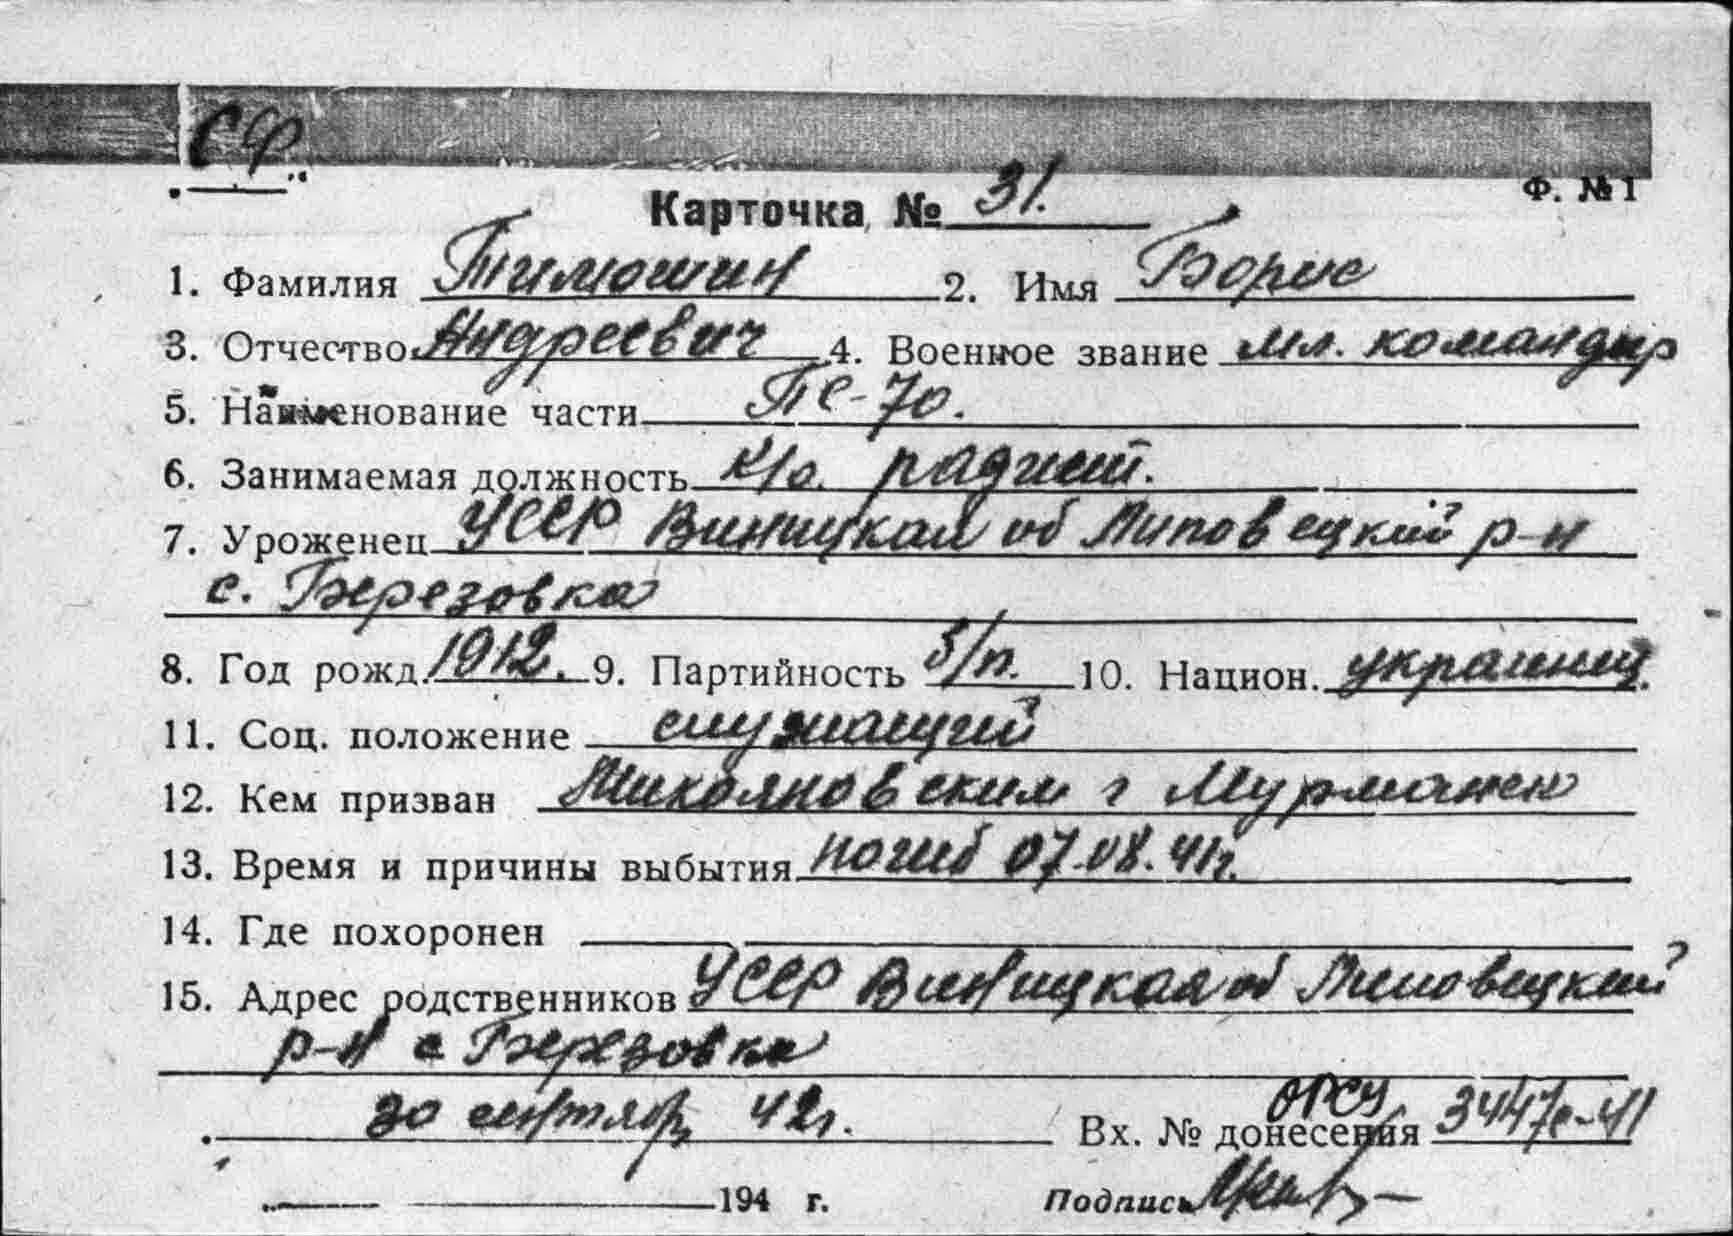 СФ
Ф. № 1
Карточка № 31.
1. Фамилия Тимошин 2. Имя Борис
3. Отчество Андреевич 4. Военное звание мл. командир
5. Наименование части ПС-70.
6. Занимаемая должность к/о. радист.
7. Уроженец УССР Виницкая об Липовецкий р-н
с. Березовка
8. Год рожд. 1912. 9. Партийность б/п. 10. Национ. украинец.
11. Соц. положение служащий
12. Кем призван Микояновским г Мурманск
13. Время и причины выбытия погиб 07.08.41г.
14. Где похоронен
15. Адрес родственников УССР Виницкая об Липовецкий
р-н с Березовка
30 сентябр 42г. Вх. № донесения ОРСУ 3447с-41
194 г. Подпись